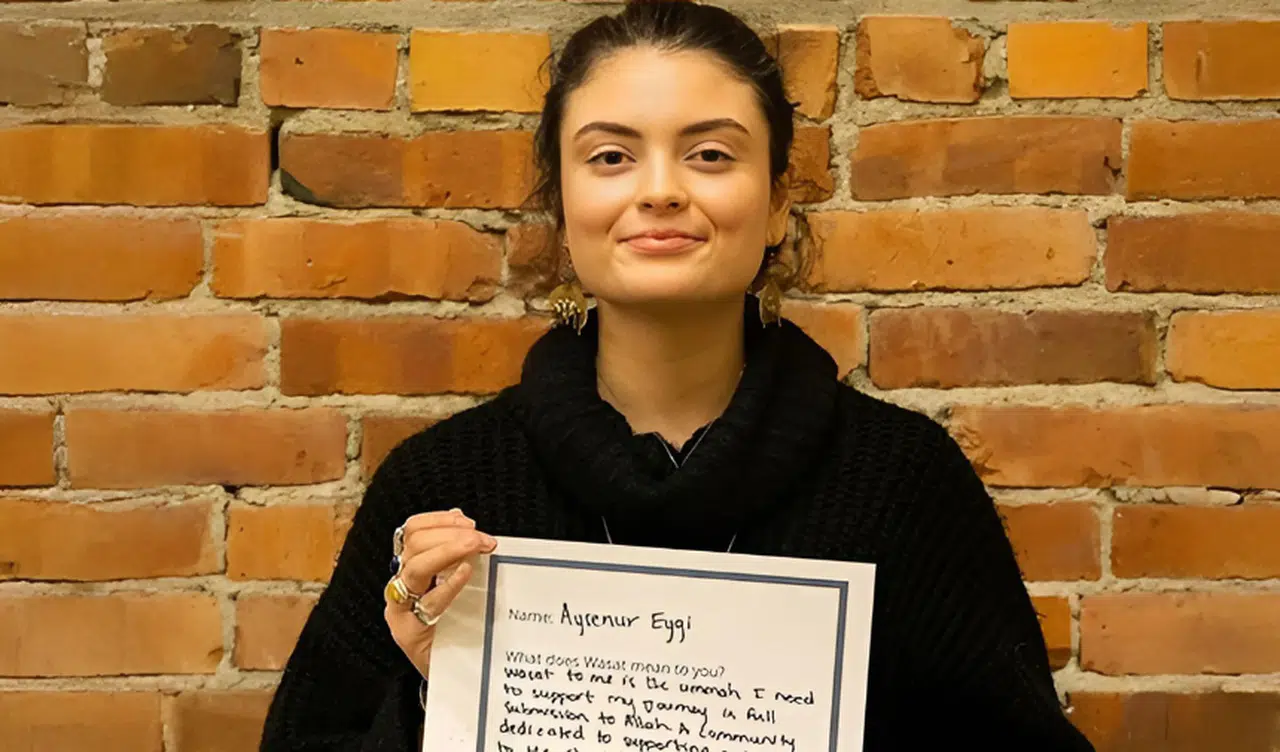 Name: Aysenur Eygi
What does Wasat mean to you?
Wasat to me is the ummah I need
to support my journey in full
submission to Allah. A community
dedicated to supporting
to the